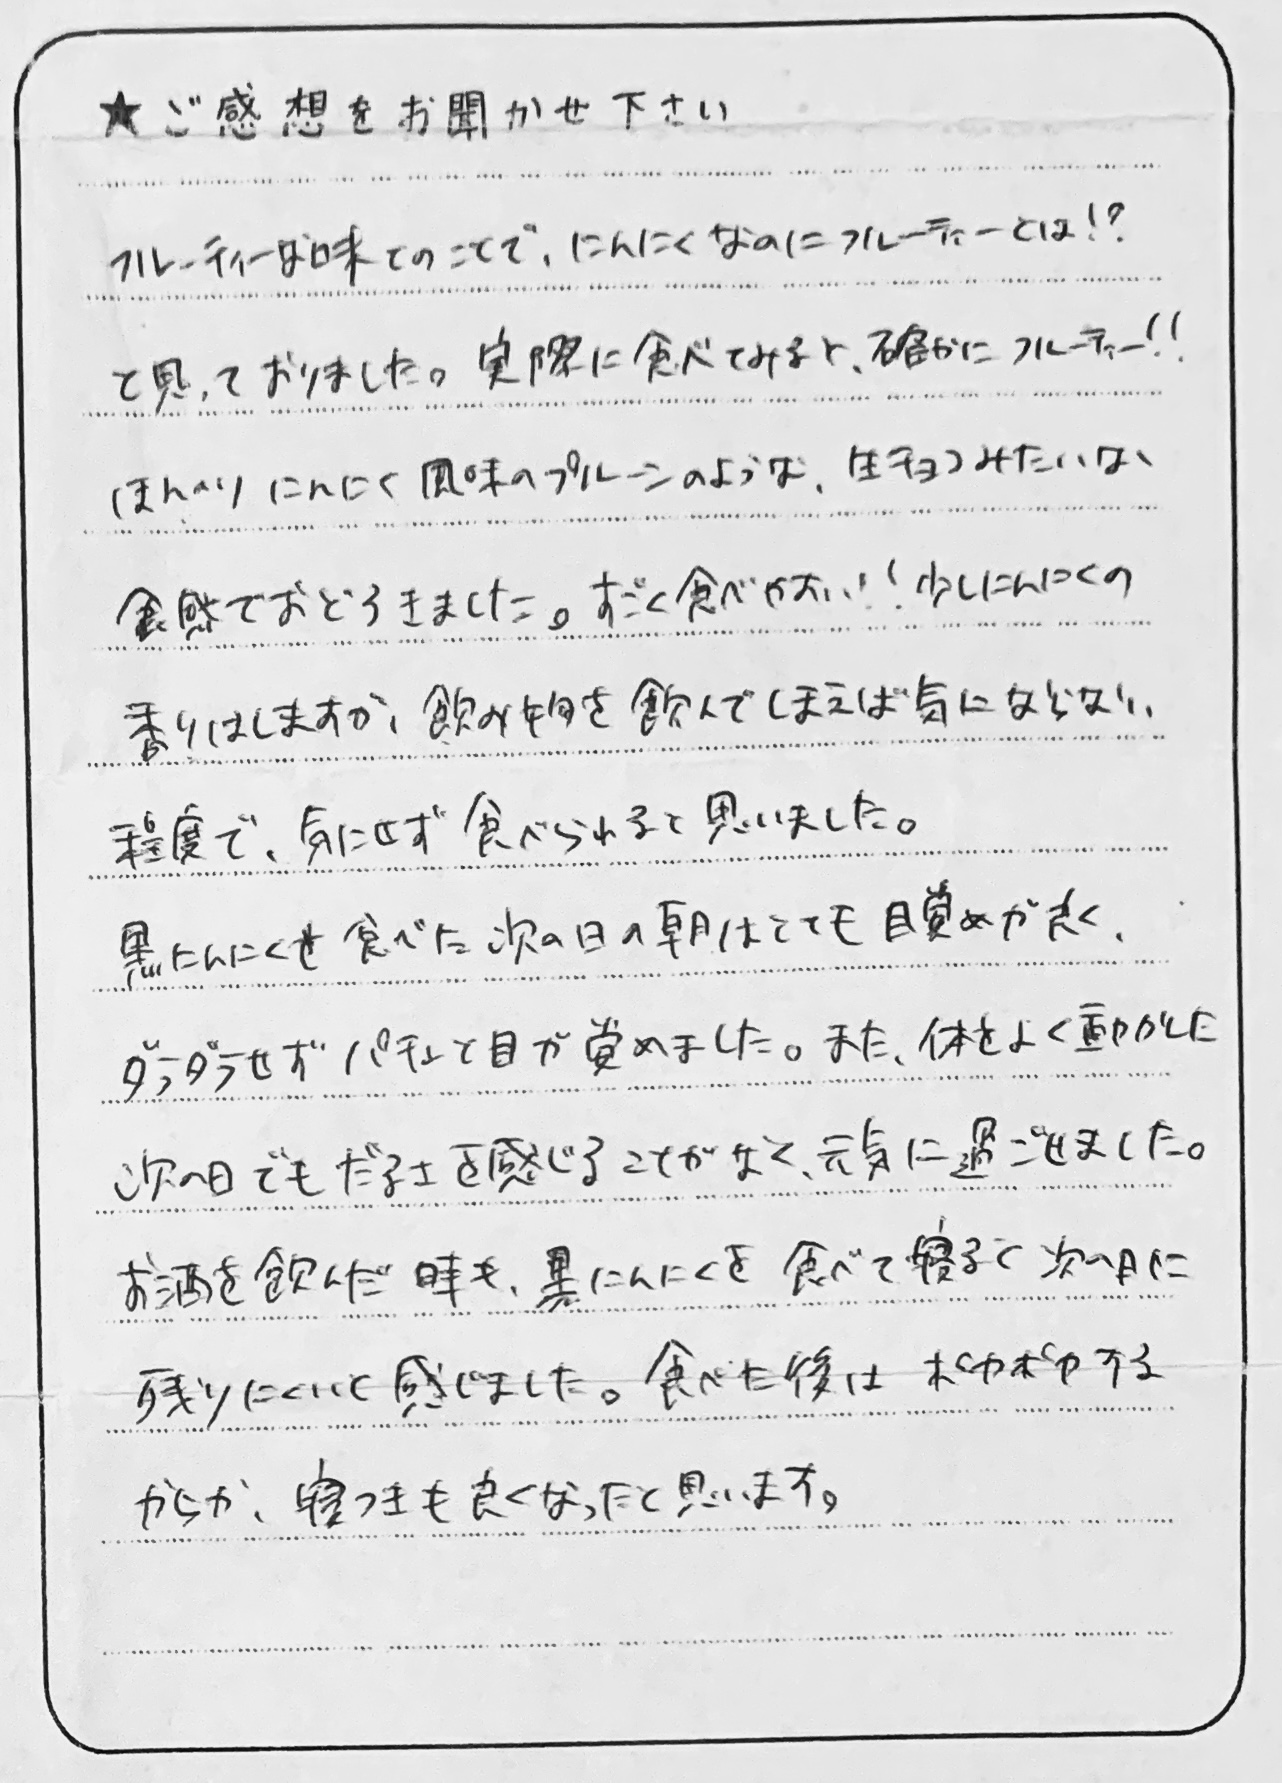 ★ご感想をお聞かせ下さい
フルーティーな味とのことで、にんにくなのにフルーティーとは!?
と思っておりました。実際に食べてみると、確かにフルーティー!!
ほんのりにんにく風味のプルーンのような、生チョコみたいな
食感でおどろきました。すごく食べやすい!!少しにんにくの
香りはしますが、飲み物を飲んでしまえば気にならない
程度で、気にせず食べられると思いました。
黒にんにくを食べた次の日の朝はとても目覚めが良く、
ダラダラせずパチッと目が覚めました。また、体をよく動かした
次の日でもだるさを感じることがなく、元気に過ごせました。
お酒を飲んだ時も、黒にんにくを食べて寝ると次の日に
残りにくいと感じました。食べた後はポカポカする
からか、寝つきも良くなったと思います。